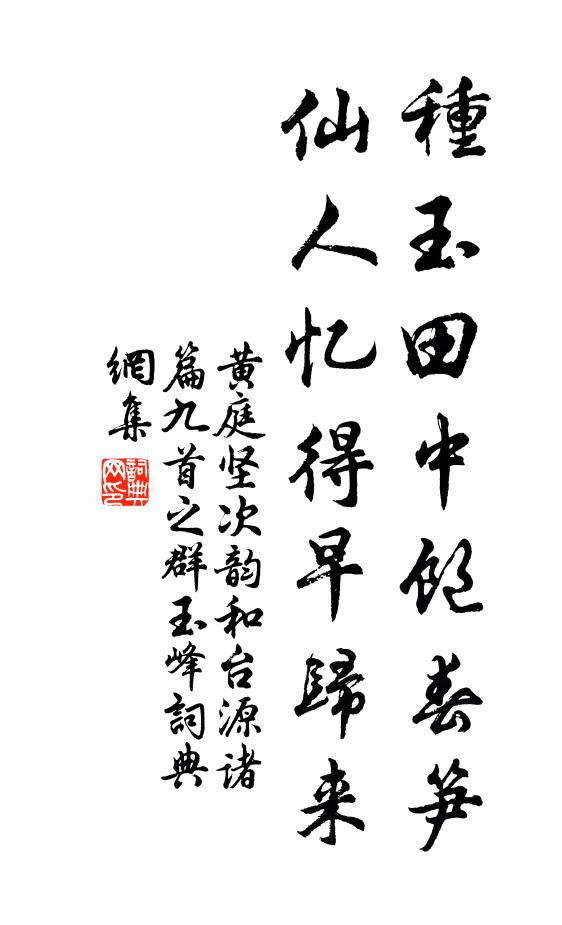 種玉田中飽春笋
仙人忆得早歸来
黄庭坚次韵和台源诸
篇九首之群玉峰詞典
網集
詞典网印